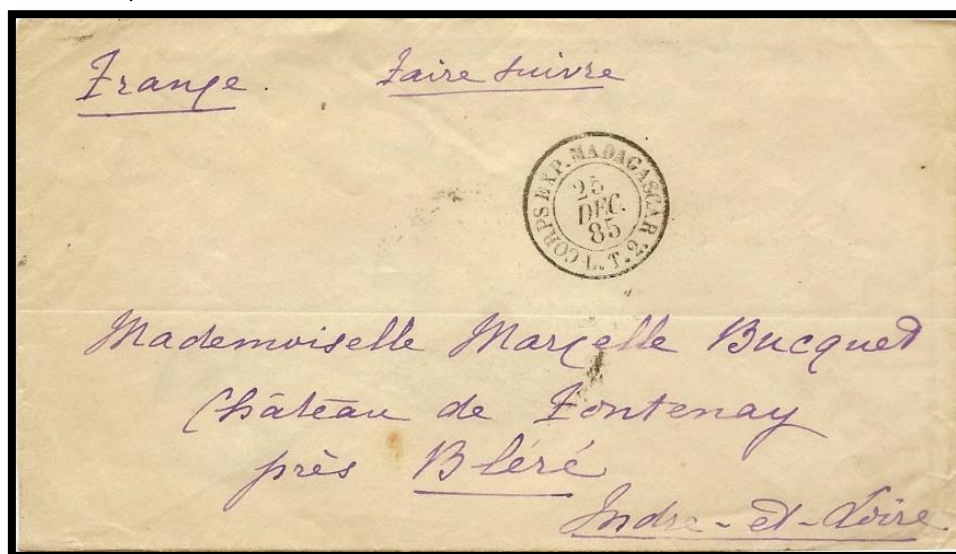 France. Faire suivre
CORPS EXP. MADAGASCAR
25
DEC.
85
L. T. 2.
Mademoiselle Marcelle Bucquet
Château de Fontenay
près Bléré
Indre-et-Loire